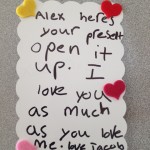 Alex heres
your present
open it
up. I
love you
as much
as you love
me. love Jacob